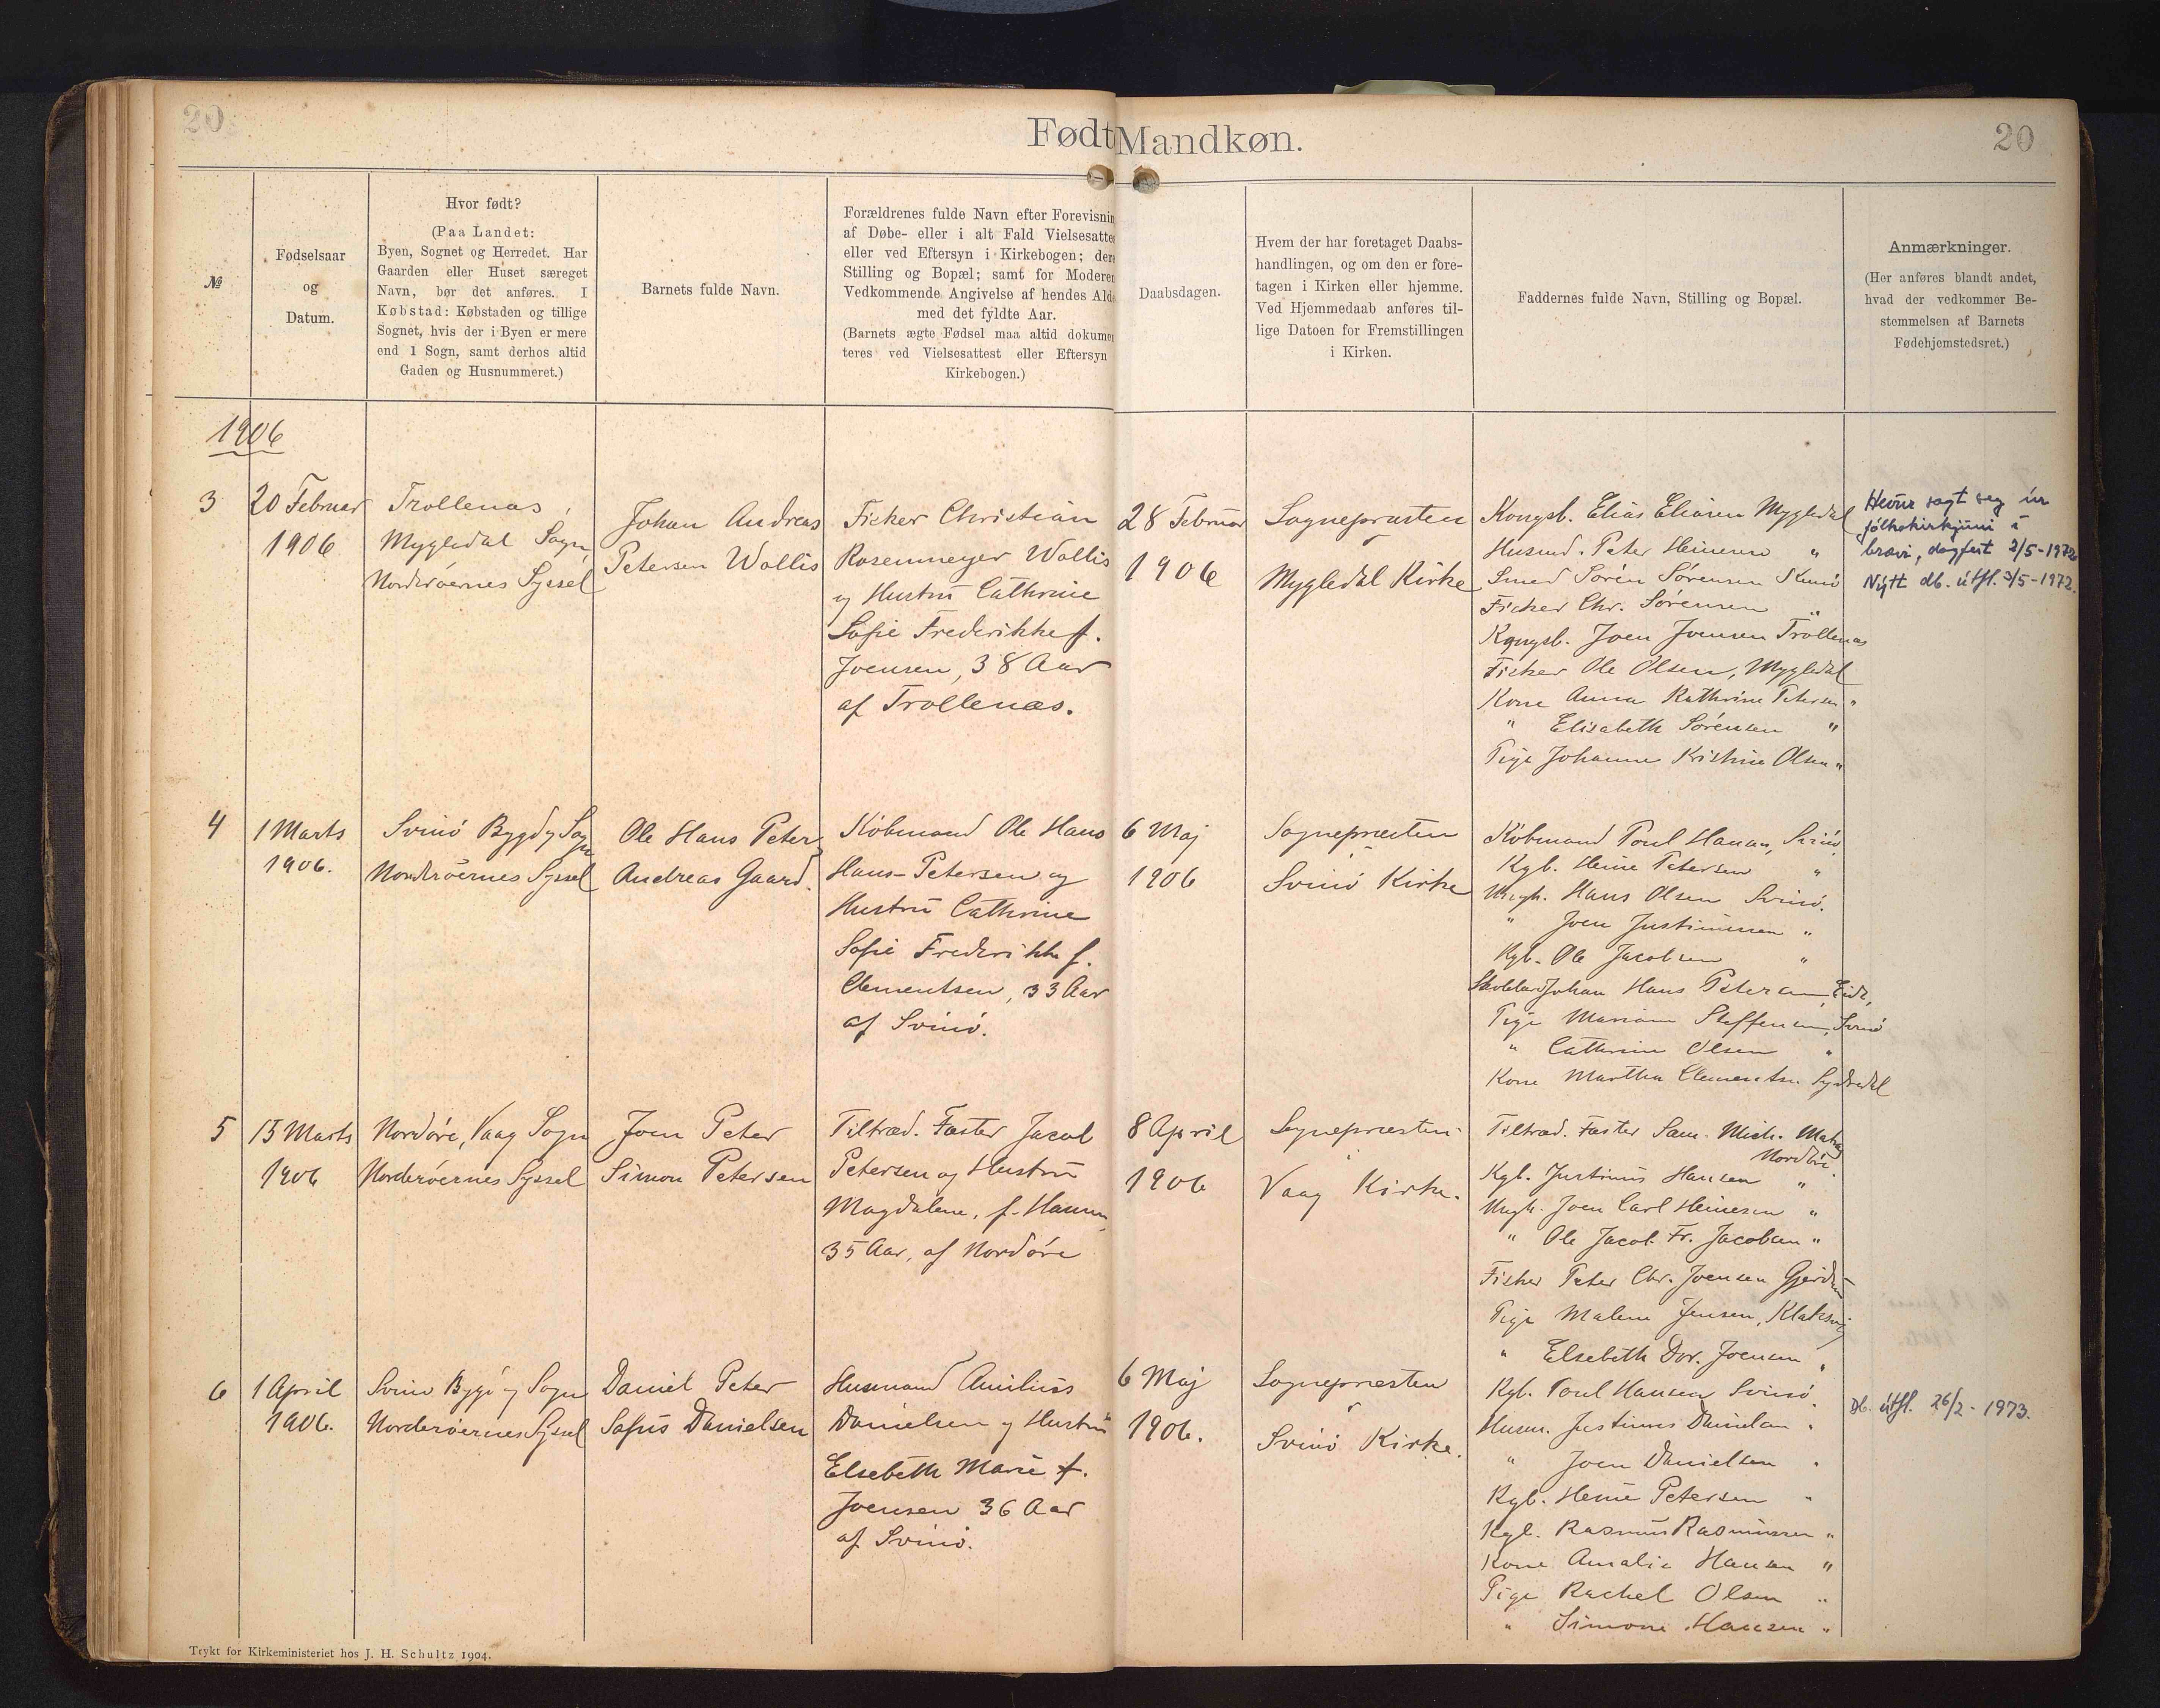 20
Født Mandkøn.
20
№
Fødselsaar
og
Datum.
Hvor født?
(Paa Landet:
Byen, Sognet og Herredet. Har
Gaarden eller Huset særeget
Navn, bør det anføres. I
Købstad: Købstaden og tillige
Sognet, hvis der i Byen er mere
end 1 Sogn, samt derhos altid
Gaden og Husnummeret.)
Barnets fulde Navn.
Forældrenes fulde Navn efter Forevisnin
af Døbe- eller i alt Fald Vielsesattes
eller ved Eftersyn i Kirkebogen; dere
Stilling og Bopæl; samt for Moderen
Vedkommende Angivelse af hendes Alde
med det fyldte Aar.
(Barnets ægte Fødsel maa altid dokumen
teres ved Vielsesattest eller Eftersyn
Kirkebogen.)
Daabsdagen.
Hvem der har foretaget Daabs-
handlingen, og om den er fore-
tagen i Kirken eller hjemme.
Ved Hjemmedaab anføres til-
lige Datoen for Fremstillingen
i Kirken.
Faddernes fulde Navn, Stilling og Bopæl.
Anmærkninger.
(Her anføres blandt andet,
hvad der vedkommer Be-
stemmelsen af Barnets
Fødehjemstedsret.)
1906
3
20 Februar
1906
Trollenæs,
Mygledal Sogn
Norderøernes Syssel
Johan Andreas
Petersen Wallis
Fisker Christian
Rosenmeyer Wallis
og Hustru Cathrine
Sofie Frederikke f.
Joensen, 38 Aar
af Trollenæs.
28 Februar
1906
Sognepræsten
Mygledal Kirke
Kongsb. Elias Eliasen Mygledal
Husmd. Peter Heinesen "
Smed Sørén Sørensen Kunø
Fisker Chr. Sørensen "
Kongsb. Joen Joensen Trollenæs
Fisker Ole Olsen, Mygledal
Kone Anna Kathrine Petersen "
" Elisabeth Sørensen "
Pige Johanne Kristine Olsen "
Hevur sagt seg úr
fólkakirkjuni í
brævi, dagfest 2/5-1972
Nýtt db. útfl. 3/5-1972.
4
1 Marts
1906.
Svinø Bygd og Sogn
Norderøernes Syssel
Ole Hans Peter
Andreas Gaard.
Købmand Ole Hans
Hans-Petersen og
Hustru Cathrine
Sofie Frederikke f.
Clementsen, 33 Aar
af Svinø.
6 Maj
1906
Sognepræsten
Svinø Kirke
Købmand Poul Hansen, Svinø
Kgb. Heine Petersen "
Ungk. Hans Olsen Svinø.
" Joen Justinussen "
Kgb. Ole Jacobsen "
Johan Hans Petersen, Eide,
Pige Mariane Steffensen, Svinø
" Cathrine Olsen "
Kone Martha Clementsen Sydredal
5
15 Marts
1906
Nordøre, Vaag Sogn
Norderøernes Syssel
Joen Peter
Simon Petersen
Tiltræd. Fæster Jacob
Petersen og Hustru
Magdalene, f. Hansen,
35 Aar, af Nordøre
8 April
1906
Sognepræsten
Vaag Kirke.
Tiltræd. Fæster Sam. Mich.
Nordøre.
Kgb. Justinus Hansen "
Ungk. Joen Carl Heinesen "
" Ole Jacob Fr. Jacobsen "
Fisker Peter Chr. Joensen
Pige Malene Jensen, Klaksvig
" Elsebeth Dor. Joensen "
6
1 April
1906.
Svinø Bygd og Sogn
Norderøernes Syssel
Daniel Peter
Sofus Danielsen
Husmand Amilius
Danielsen og Hustru
Elsebeth Marie f.
Joensen 36 Aar
af Svinø.
6 Maj
1906.
Sognepræsten
Svinø Kirke.
Kgb. Poul Hansen Svinø.
Husm. Justinus Danielsen "
" Joen Danielsen "
Kgb. Heine Petersen "
Kgb. Rasmus Rasmussen "
Kone Amalie Hansen "
Pige Rachel Olsen "
" Simone Hansen "
Db. útfl. 26/2-1973.
Trykt for Kirkeministeriet hos J. H. Schultz 1904.